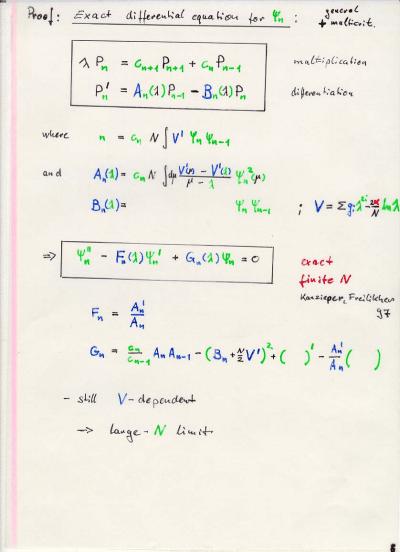 Proof: Exact differential equation for Ψn : general + multicrit.
λ Pn = cn+1 Pn+1 + cn Pn-1 multiplication
Pn' = An(λ) Pn-1 − Bn(λ) Pn differentiation
where n = cn N ∫ V' Ψn Ψn-1
and An(λ) = cn N ∫ dμ V'(μ) − V'(λ) / μ − λ Ψn²(μ)
Bn(λ) = Ψn Ψn-1 ; V = Σ gi λ²ⁱ − /N ln λ
⇒ Ψn'' − Fn(λ) Ψn' + Gn(λ) Ψn = 0 exact
finite N
Kanzieper, Freilikher 97
Fn = An' / An
Gn = cn / cn-1 An An-1 − (Bn + N/2 V')² + ( )' − An' / An ( )
- still V-dependent
⇒ large-N limit